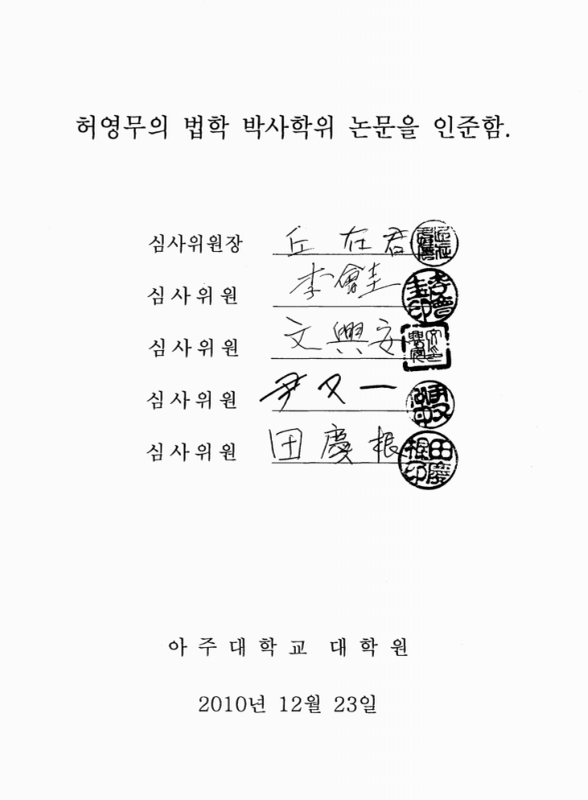 허영무의 법학 박사학위 논문을 인준함.
심사위원장 丘在君
심사위원 李會圭
심사위원 文興安
심사위원 尹又一
심사위원 田慶根
아주대학교 대학원
2010년 12월 23일